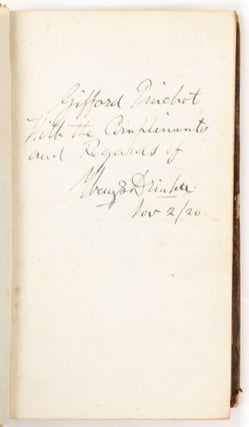 Gifford Pinchot
With the Compliments
and Regards of
Henry S Drinker.
Nov 2/20.